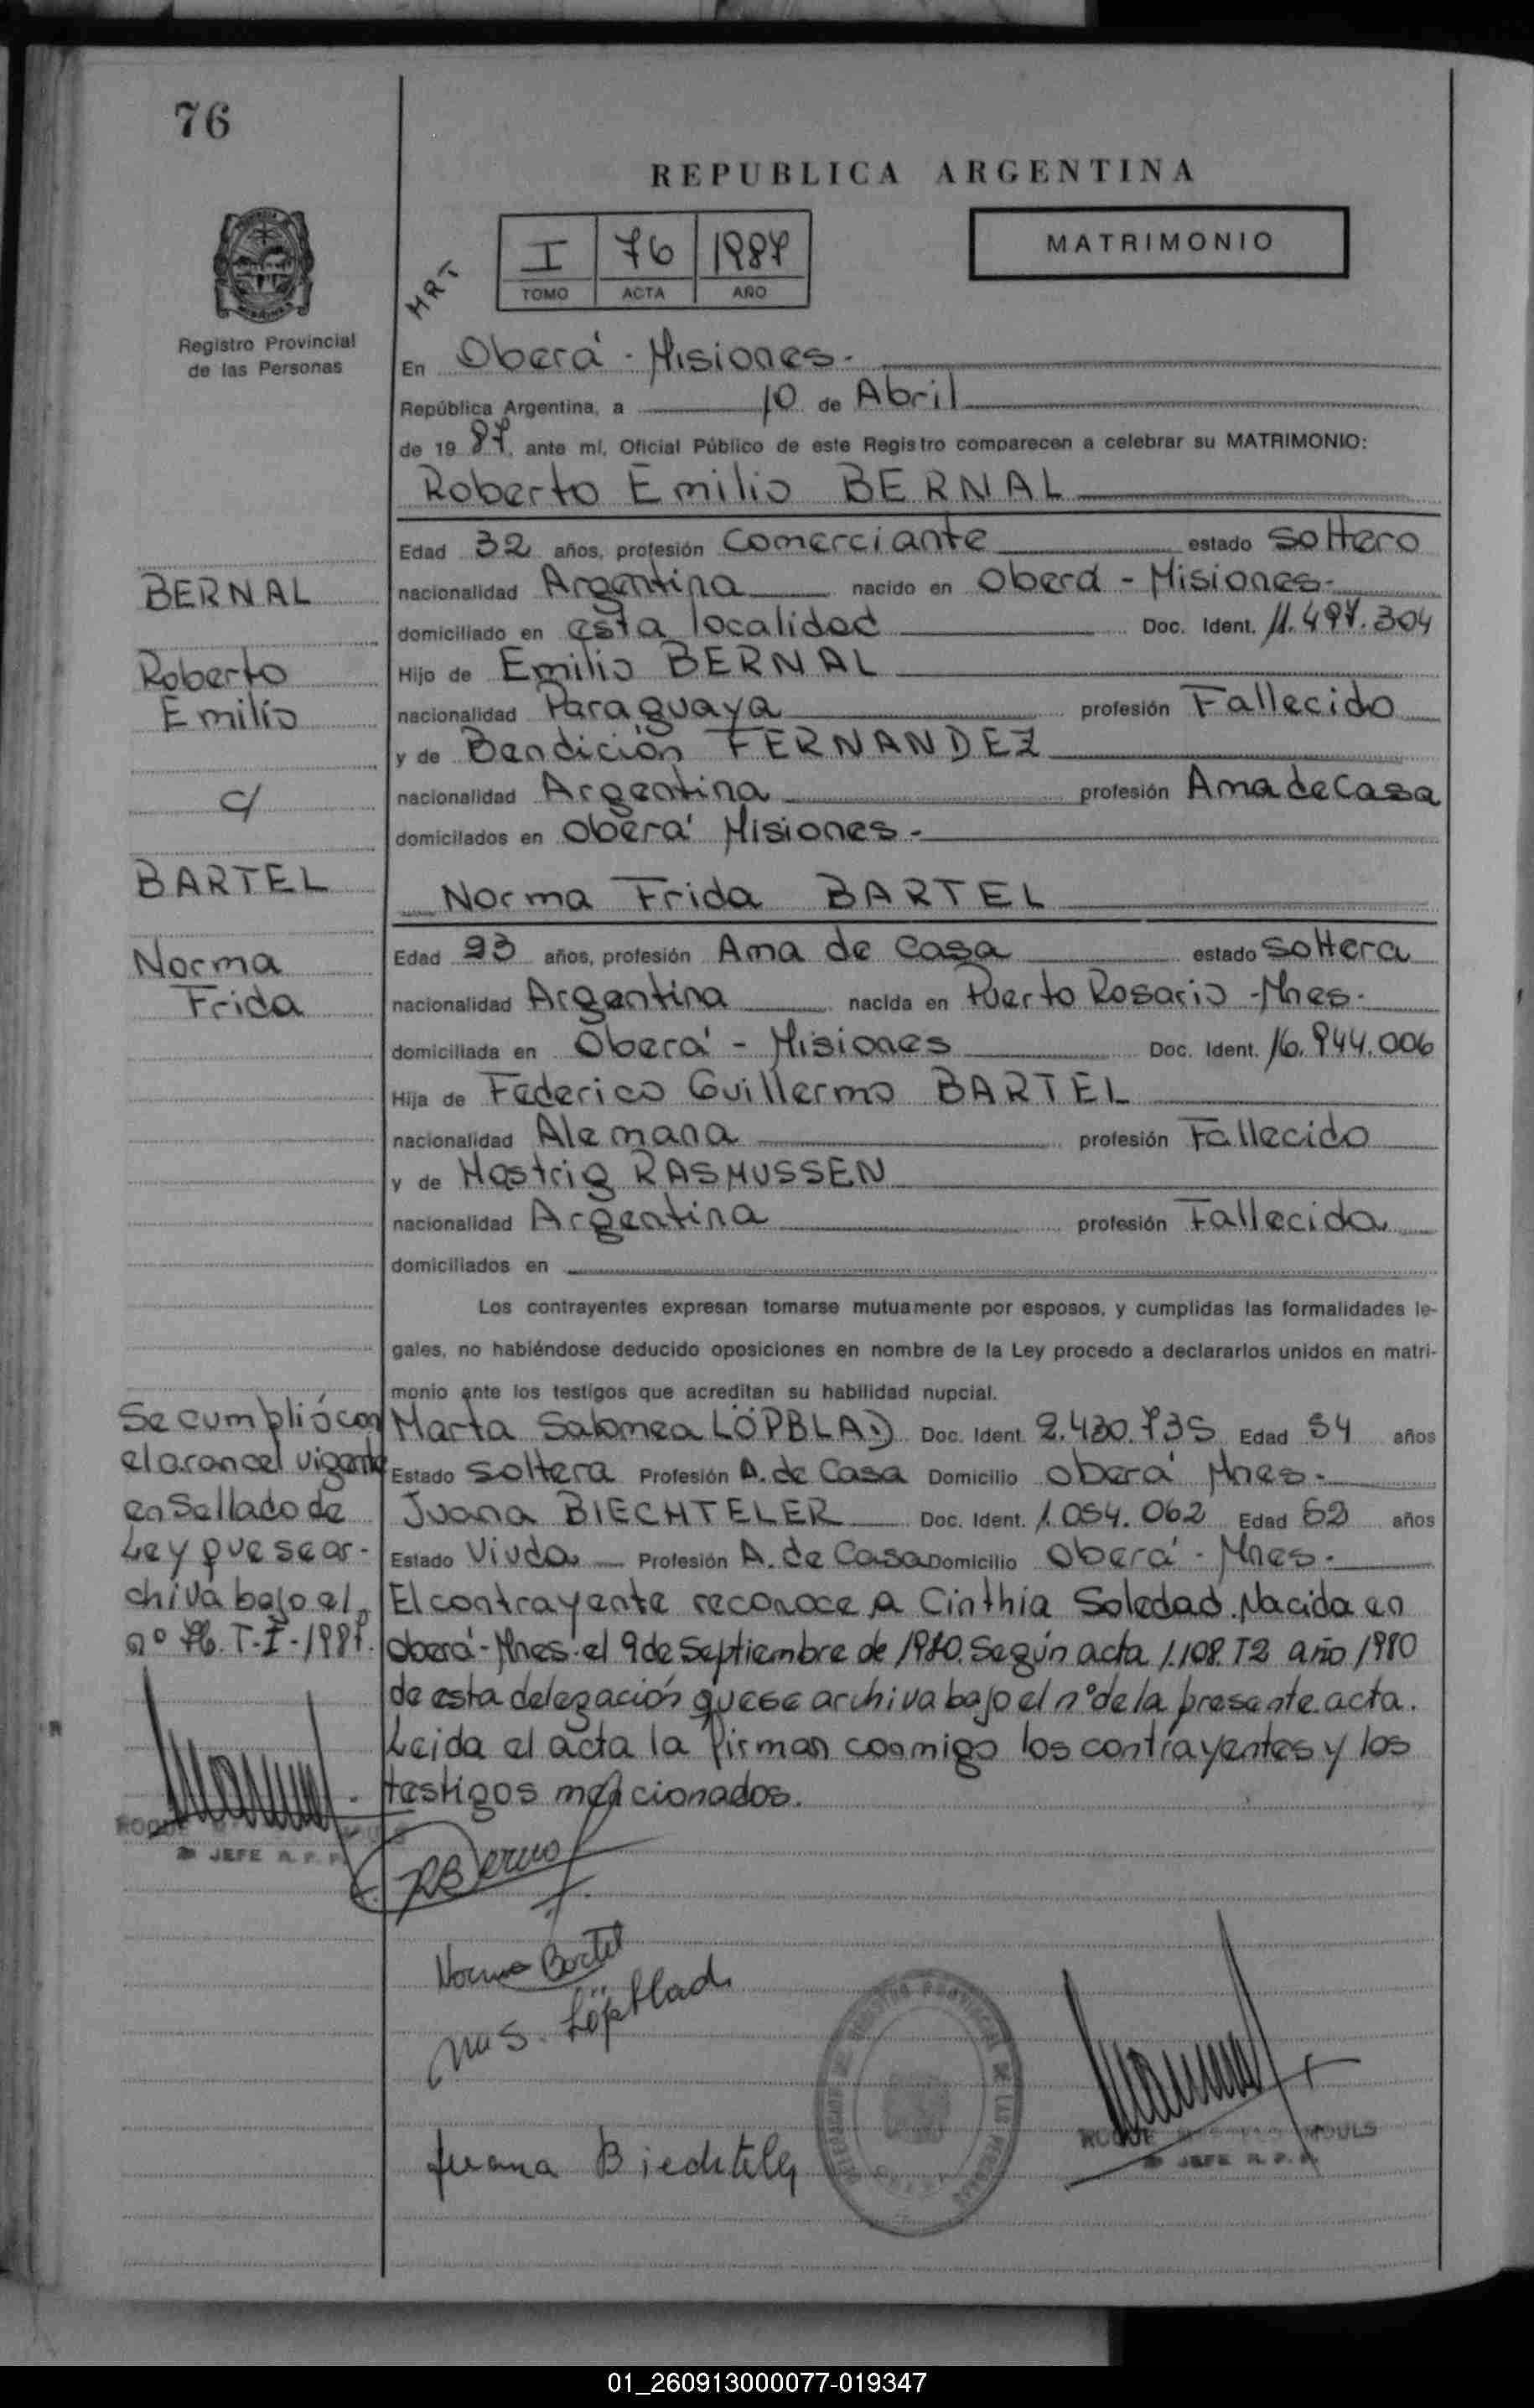 76
REPUBLICA ARGENTINA
I 76 1987
TOMO ACTA AÑO
MATRIMONIO
HRT
Registro Provincial
de las Personas
En Oberá - Misiones.
República Argentina, a 10 de Abril
de 19 87, ante mí, Oficial Público de este Registro comparecen a celebrar su MATRIMONIO:
Roberto Emilio BERNAL
Edad 32 años, profesión Comerciante estado soltero
nacionalidad Argentina nacido en Oberá - Misiones.
domiciliado en esta localidad Doc. Ident. 11.497.304
Hijo de Emilio BERNAL
nacionalidad Paraguaya profesión Fallecido
y de Bendición FERNANDEZ
nacionalidad Argentina profesión Ama de Casa
domicilados en Oberá Misiones.
BERNAL
Roberto
Emilio
c/
BARTEL
Norma
Frida
Norma Frida BARTEL
Edad 23 años, profesión Ama de Casa estado soltera
nacionalidad Argentina nacida en Puerto Rosario - Mnes.
domiciliada en Oberá - Misiones Doc. Ident. 16.944.006
Hija de Federico Guillermo BARTEL
nacionalidad Alemana profesión Fallecido
y de RASMUSSEN
nacionalidad Argentina profesión Fallecida
domiciliados en
Los contrayentes expresan tomarse mutuamente por esposos, y cumplidas las formalidades le-
gales, no habiéndose deducido oposiciones en nombre de la Ley procedo a declararlos unidos en matri-
monio ante los testigos que acreditan su habilidad nupcial.
Marta Salomea LÖPBLAD Doc. Ident. 2.430.735 Edad 54 años
Estado soltera Profesión A. de Casa Domicilio Oberá Mnes.
Juana BIECHTELER Doc. Ident. 1.054.062 Edad 52 años
Estado Viuda Profesión A. de Casa Domicilio Oberá - Mnes.
El contrayente reconoce a Cinthia Soledad. Nacida en
Oberá - Mnes. el 9 de Septiembre de 1980. Según acta 1.108. T2 año 1980
de esta delegación que se archiva bajo el nº de la presente acta.
Leida el acta la firman conmigo los contrayentes y los
testigos mencionados.
Se cumplió con
el arancel vigente
en Sellado de
Ley que se ar-
chiva bajo el
nº 76. T-I-1987.
ROQUE
JEFE R. P. P.
RBernal
Norma Bartel
M. S. Löpblad
Juana Biechteler
ROQUE MOULS
JEFE R. P. P.
01_260913000077-019347